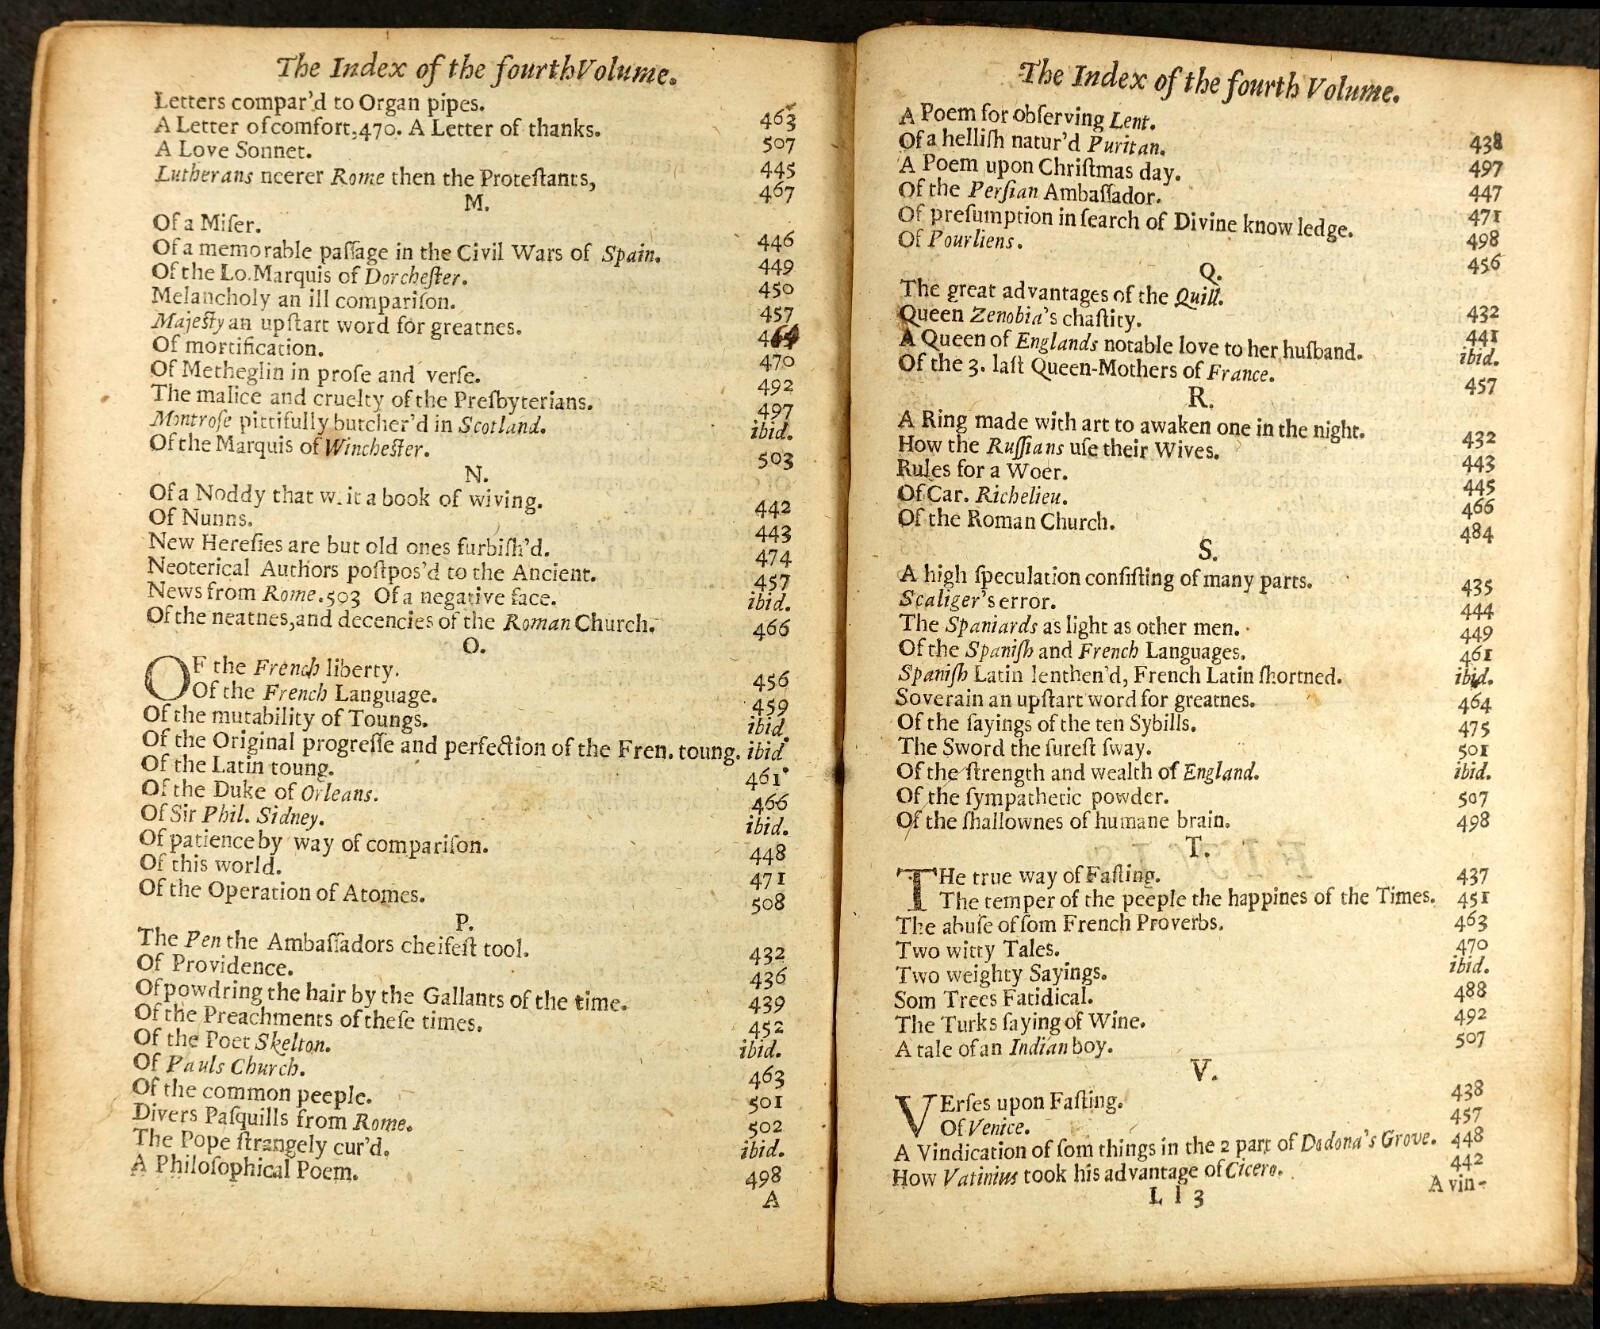 The Index of the fourth Volume.
Letters compar'd to Organ pipes. 463
A Letter of comfort, 470. A Letter of thanks. 507
A Love Sonnet. 445
Lutherans neerer Rome then the Proteſtants, 467
M.
Of a Miſer. 446
Of a memorable paſſage in the Civil Wars of Spain. 449
Of the Lo. Marquis of Dorcheſter. 450
Melancholy an ill compariſon. 457
Majeſty an upſtart word for greatnes. 464
Of mortification. 470
Of Metheglin in proſe and verſe. 492
The malice and cruelty of the Preſbyterians. 497
Montroſe pittifully butcher'd in Scotland. ibid.
Of the Marquis of Wincheſter. 503
N.
Of a Noddy that writ a book of wiving. 442
Of Nunns. 443
New Hereſies are but old ones furbiſh'd. 474
Neoterical Authors poſtpos'd to the Ancient. 457
News from Rome. 503 Of a negative face. ibid.
Of the neatnes, and decencies of the Roman Church. 466
O.
OF the French liberty. 456
Of the French Language. 459
Of the mutability of Toungs. ibid.
Of the Original progreſſe and perfection of the Fren. toung. ibid
Of the Latin toung. 461
Of the Duke of Orleans. 466
Of Sir Phil. Sidney. ibid.
Of patience by way of compariſon. 448
Of this world. 471
Of the Operation of Atomes. 508
P.
The Pen the Ambaſſadors cheifeſt tool. 432
Of Providence. 436
Of powdring the hair by the Gallants of the time. 439
Of the Preachments of theſe times. 452
Of the Poet Skelton. ibid.
Of Pauls Church. 463
Of the common peeple. 501
Divers Paſquills from Rome. 502
The Pope ſtrangely cur'd. ibid.
A Philoſophical Poem. 498
A
The Index of the fourth Volume.
A Poem for obſerving Lent. 438
Of a helliſh natur'd Puritan. 497
A Poem upon Chriſtmas day. 447
Of the Perſian Ambaſſador. 471
Of preſumption in ſearch of Divine knowledge. 498
Of Pourliens. 456
Q.
The great advantages of the Quill. 432
Queen Zenobia's chaſtity. 441
A Queen of Englands notable love to her huſband. ibid.
Of the 3. laſt Queen-Mothers of France. 457
R.
A Ring made with art to awaken one in the night. 432
How the Ruſſians uſe their Wives. 443
Rules for a Woer. 445
Of Car. Richelieu. 466
Of the Roman Church. 484
S.
A high ſpeculation conſiſting of many parts. 435
Scaliger's error. 444
The Spaniards as light as other men. 449
Of the Spaniſh and French Languages. 461
Spaniſh Latin lenthen'd, French Latin ſhortned. ibid.
Soverain an upſtart word for greatnes. 464
Of the ſayings of the ten Sybills. 475
The Sword the ſureſt ſway. 501
Of the ſtrength and wealth of England. ibid.
Of the ſympathetic powder. 507
Of the ſhallownes of humane brain. 498
T.
THe true way of Faſting. 437
The temper of the peeple the happines of the Times. 451
The abuſe of ſom French Proverbs. 463
Two witty Tales. 470
Two weighty Sayings. ibid.
Som Trees Fatidical. 488
The Turks ſaying of Wine. 492
A tale of an Indian boy. 507
V.
VErſes upon Faſting. 438
Of Venice. 457
A Vindication of ſom things in the 2 part of Dodona's Grove. 448
How Vatinius took his advantage of Cicero. 442
Ll 3 A vin-